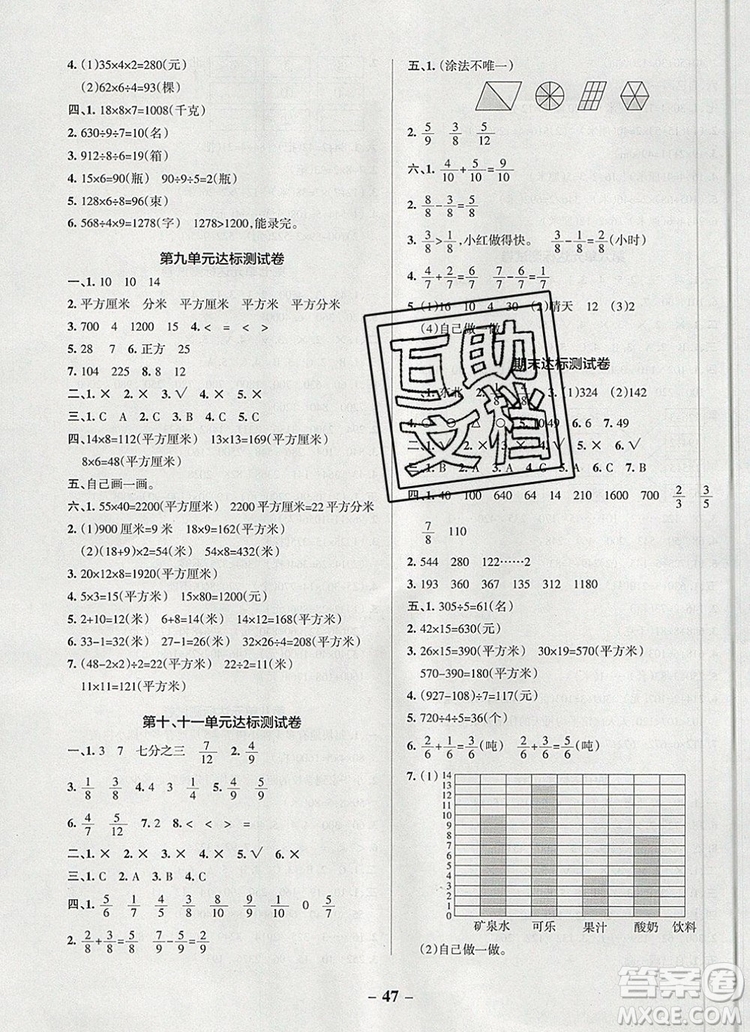 4. (1)35×4×2=280(元)
(2)62×6÷4=93(棵)
四、1. 18×8×7=1008(千克)
2. 630÷9÷7=10(名)
3. 912÷8÷6=19(箱)
4. 15×6=90(瓶) 90÷9÷5=2(瓶)
5. 128×6÷8=96(束)
6. 568÷4×9=1278(字) 1278>1200,能录完。
第九单元达标测试卷
一、1. 10 10 14
2. 平方厘米 分米 平方厘米 平方米
3. 700 4 1200 15 4. < = < >
5. 28 7 6. 正方 25
7. 104 225 8. 8
二、1. × 2. × 3. × 4. √ 5. ×
三、1. C A 2. A 3. C 4. C
四、14×8=112(平方厘米) 13×13=169(平方厘米)
8×6=48(平方厘米)
五、自己画一画。
六、1. 55×40=2200(平方厘米) 2200平方厘米=22平方分米
2. (1)900厘米=9米 18×9=162(平方米)
(2)(18+9)×2=54(米) 54×8=432(米)
3. 20×12×8=1920(平方米)
4. 5×3=15(平方米) 15×80=1200(平方米)
5. 2+10=12(米) 6+8=14(米) 12×14=168(平方米)
6. 33-1=32(米) 27-1=26(米) 32×26=832(平方米)
7. (48-2×2)÷2÷2=11(米)
11×11=121(平方米)
第十、十一单元达标测试卷
一、1. 3 7 七分之三 7/12 2. 4/9
3. 1/8 3/8 4. 4 3 5. 4/9 5/9
6. 4/7 5/12 7. 2 8. < > < =
二、1. × 2. × 3. × 4. × 5. √ 6. ×
三、1. C 2. A 3. B 4. A
四、1. 5/6 1/6 7/9 2/9 5/8 1/8 0 5/7
2. 2/9+3/9=5/9 7/8-2/8=5/8
五、1. (涂法不唯一)
2. 5/9 5/8 5/12
六、1. 4/10+5/10=9/10
2. 8/8-3/8-4/8=1/8
3. 3/8>1/8,小红做得快。 3/8-1/8=2/8(小时)
4. 4/7+2/7=6/7 6/7-5/7=1/7
5. (1)16 10 4 30 (2)晴天 12 (3)2
(4)自己做一做。
期末达标测试卷
3. (1)324 (2)142
6. 7 7. 49
四、1.
1600 700 2/3 3/5
7/8 110
2. 544 280 122……2
3. 193 360 387 135 312 1180
五、1. 305÷5=61(名)
2. 42×15=630(元)
3. 26×15=390(平方米) 30×19=570(平方米)
570-390=180(平方米)
4. (927-108)÷7=117(元)
5. 720÷4÷5=36(个)
6. 2/6+1/6=3/6(吨) 3/6+2/6=5/6(吨)
7. (1)
14
13
12
11
10
9
8
7
6
5
4
3
2
1
0
矿泉水 可乐 果汁 酸奶 饮料
(2)自己做一做。
互助
文档
- 47 -
答案圈
MXQE.COM